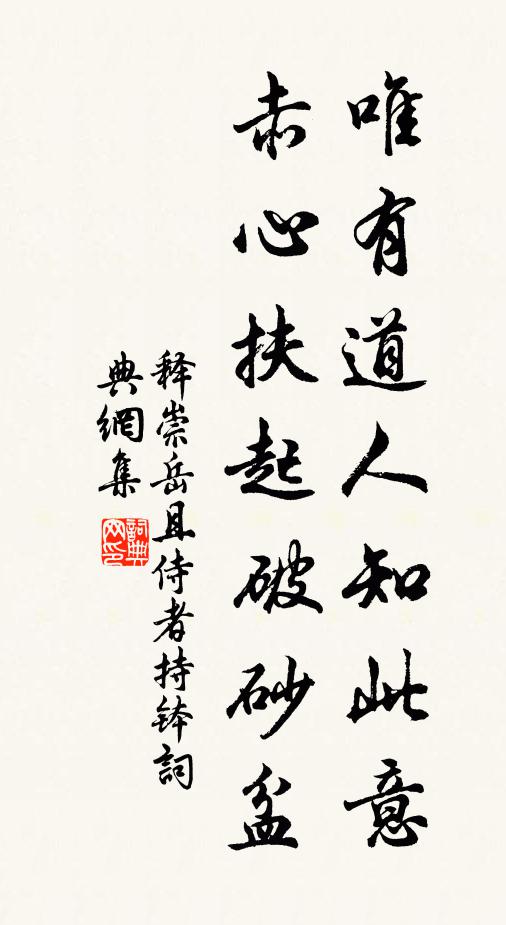 唯有道人知此意
赤心扶起破砂盆
释崇岳且侍者持钵詞
典網集
詞典网印